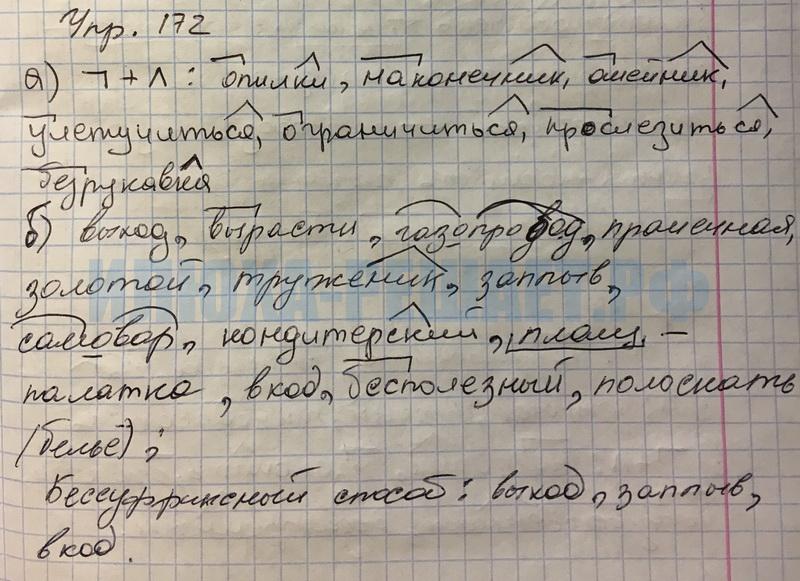 Упр. 172
а) ¬ + ʌ : опилки, наконечник, ошейник,
улетучиться, ограничиться, прослезиться,
безрукавка
б) выход, вырасти, газопровод, прачечная,
золотой, труженик, заплыв,
самовар, кондитерский, плащ –
палатка, вход, бесполезный, полоскать
(бельё);
Бессуффиксный способ: выход, заплыв,
вход.
ИННОХА-РЕШАЕТ.РФ